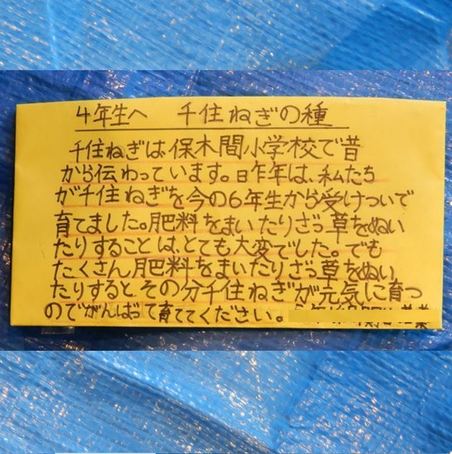 4年生へ 千住ねぎの種
千住ねぎは保木間小学校で昔
から伝わっています。昨年は、私たち
が千住ねぎを今の6年生から受けついで
育てました。肥料をまいたりざっ草をぬい
たりすることは、とても大変でした。でも
たくさん肥料をまいたりざっ草をぬい
たりすると、その分千住ねぎが元気に育つ
のでがんばって育ててください。